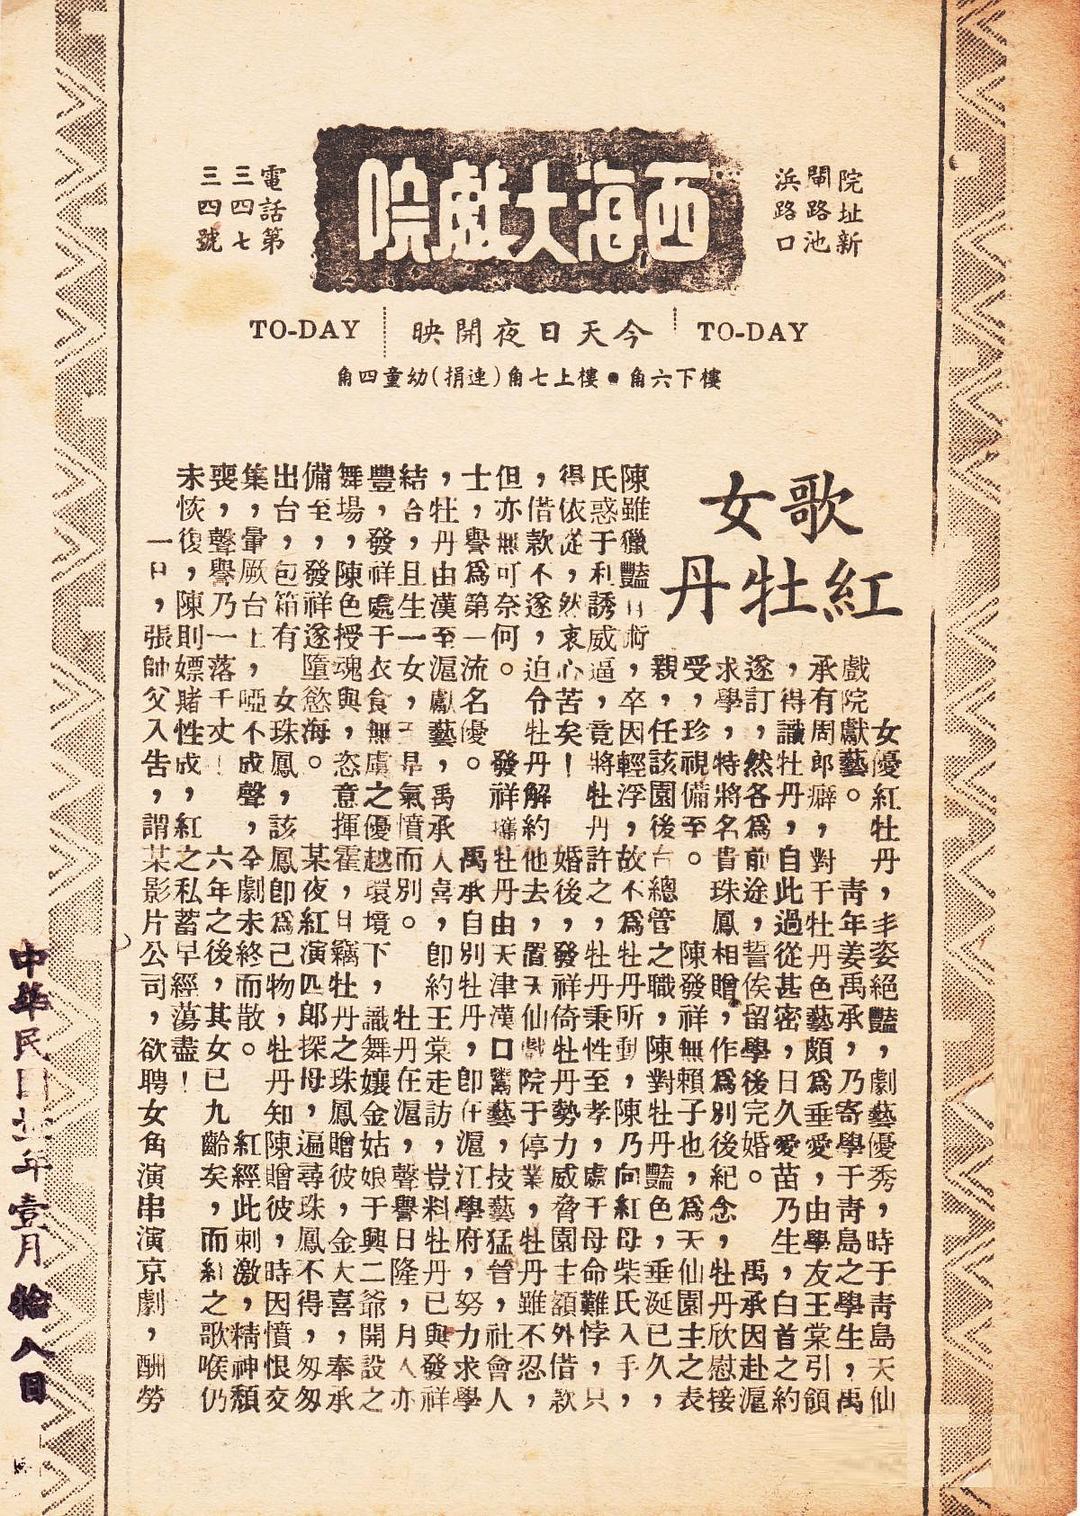 西海大戲院
院址新
閘路池
浜路口
電話第
三四七
三四號
TO-DAY
今天日夜開映
TO-DAY
樓下六角●樓上七角(連捐)幼童四角
歌女
紅牡丹
女優紅牡丹，丰姿絕豔，劇藝優秀，時于靑島天仙
戲院獻藝。靑年姜禹承，乃寄學于靑島之學生，禹
承有周郎癖，對于牡丹色藝頗爲垂愛，由學友王棠引領
，得識牡丹，自此過從甚密，日久愛苗乃生，白首之約
遂訂，然各爲前途，誓俟留學後完婚。禹承因赴滬
求學，特將名貴珠鳳相贈，作爲別後紀念，牡丹欣慰接
受，珍視備至。陳發祥無賴子也，爲天仙園主之表
親，任該園後台總管之職，陳對牡丹豔色，垂涎已久，
陳雖獵豔 術，卒因輕浮，故不爲牡丹所動，陳乃向紅母柴氏入手，
氏惑于利誘威逼，竟將牡丹許之，牡丹秉性至孝，處于母命難悖，只
得依從，然衷心苦矣！婚後，發祥倚牡丹勢力威脅園主額外借款
，借款不遂，迫令牡丹解約他去，置天仙戲院于停業，牡丹雖不忍，
但亦無可奈何。發祥攜牡丹由天津漢口鬻藝，技藝猛晉，社會人
士，譽爲第一流名優。禹承自別牡丹，卽在滬江學府，努力求學
，牡丹由漢至滬獻藝，禹承人喜，卽約王棠走訪，豈料牡丹已與發祥
結合，且生一女，王 氣憤而別。牡丹在滬，聲譽日隆，月入亦
豐，發祥處于衣食無虞之優越環境下，識舞孃金姑娘于興二爺開設之
舞場，陳色授魂與，恣意揮霍，日竊牡丹之珠鳳贈彼，金大喜，奉承
備至，發祥遂墮慾海。某夜紅演四郎探母，遍尋珠鳳不得，匆匆
出台，包箱有女珠鳳，該鳳卽爲己物，牡丹知陳贈彼，時因憤恨交
集，暈厥台上，啞不成聲，全劇未終而散。紅經此刺激，精神頹
喪，聲譽乃一落千丈！六年之後，其女已九齡矣，而紅之歌喉仍
未恢復，陳則嫖賭性成，紅之私蓄早經蕩盡！
一日，張帥父入告，謂某影片公司，欲聘女角演串演京劇，酬勞
中華民國 年壹月拾八日